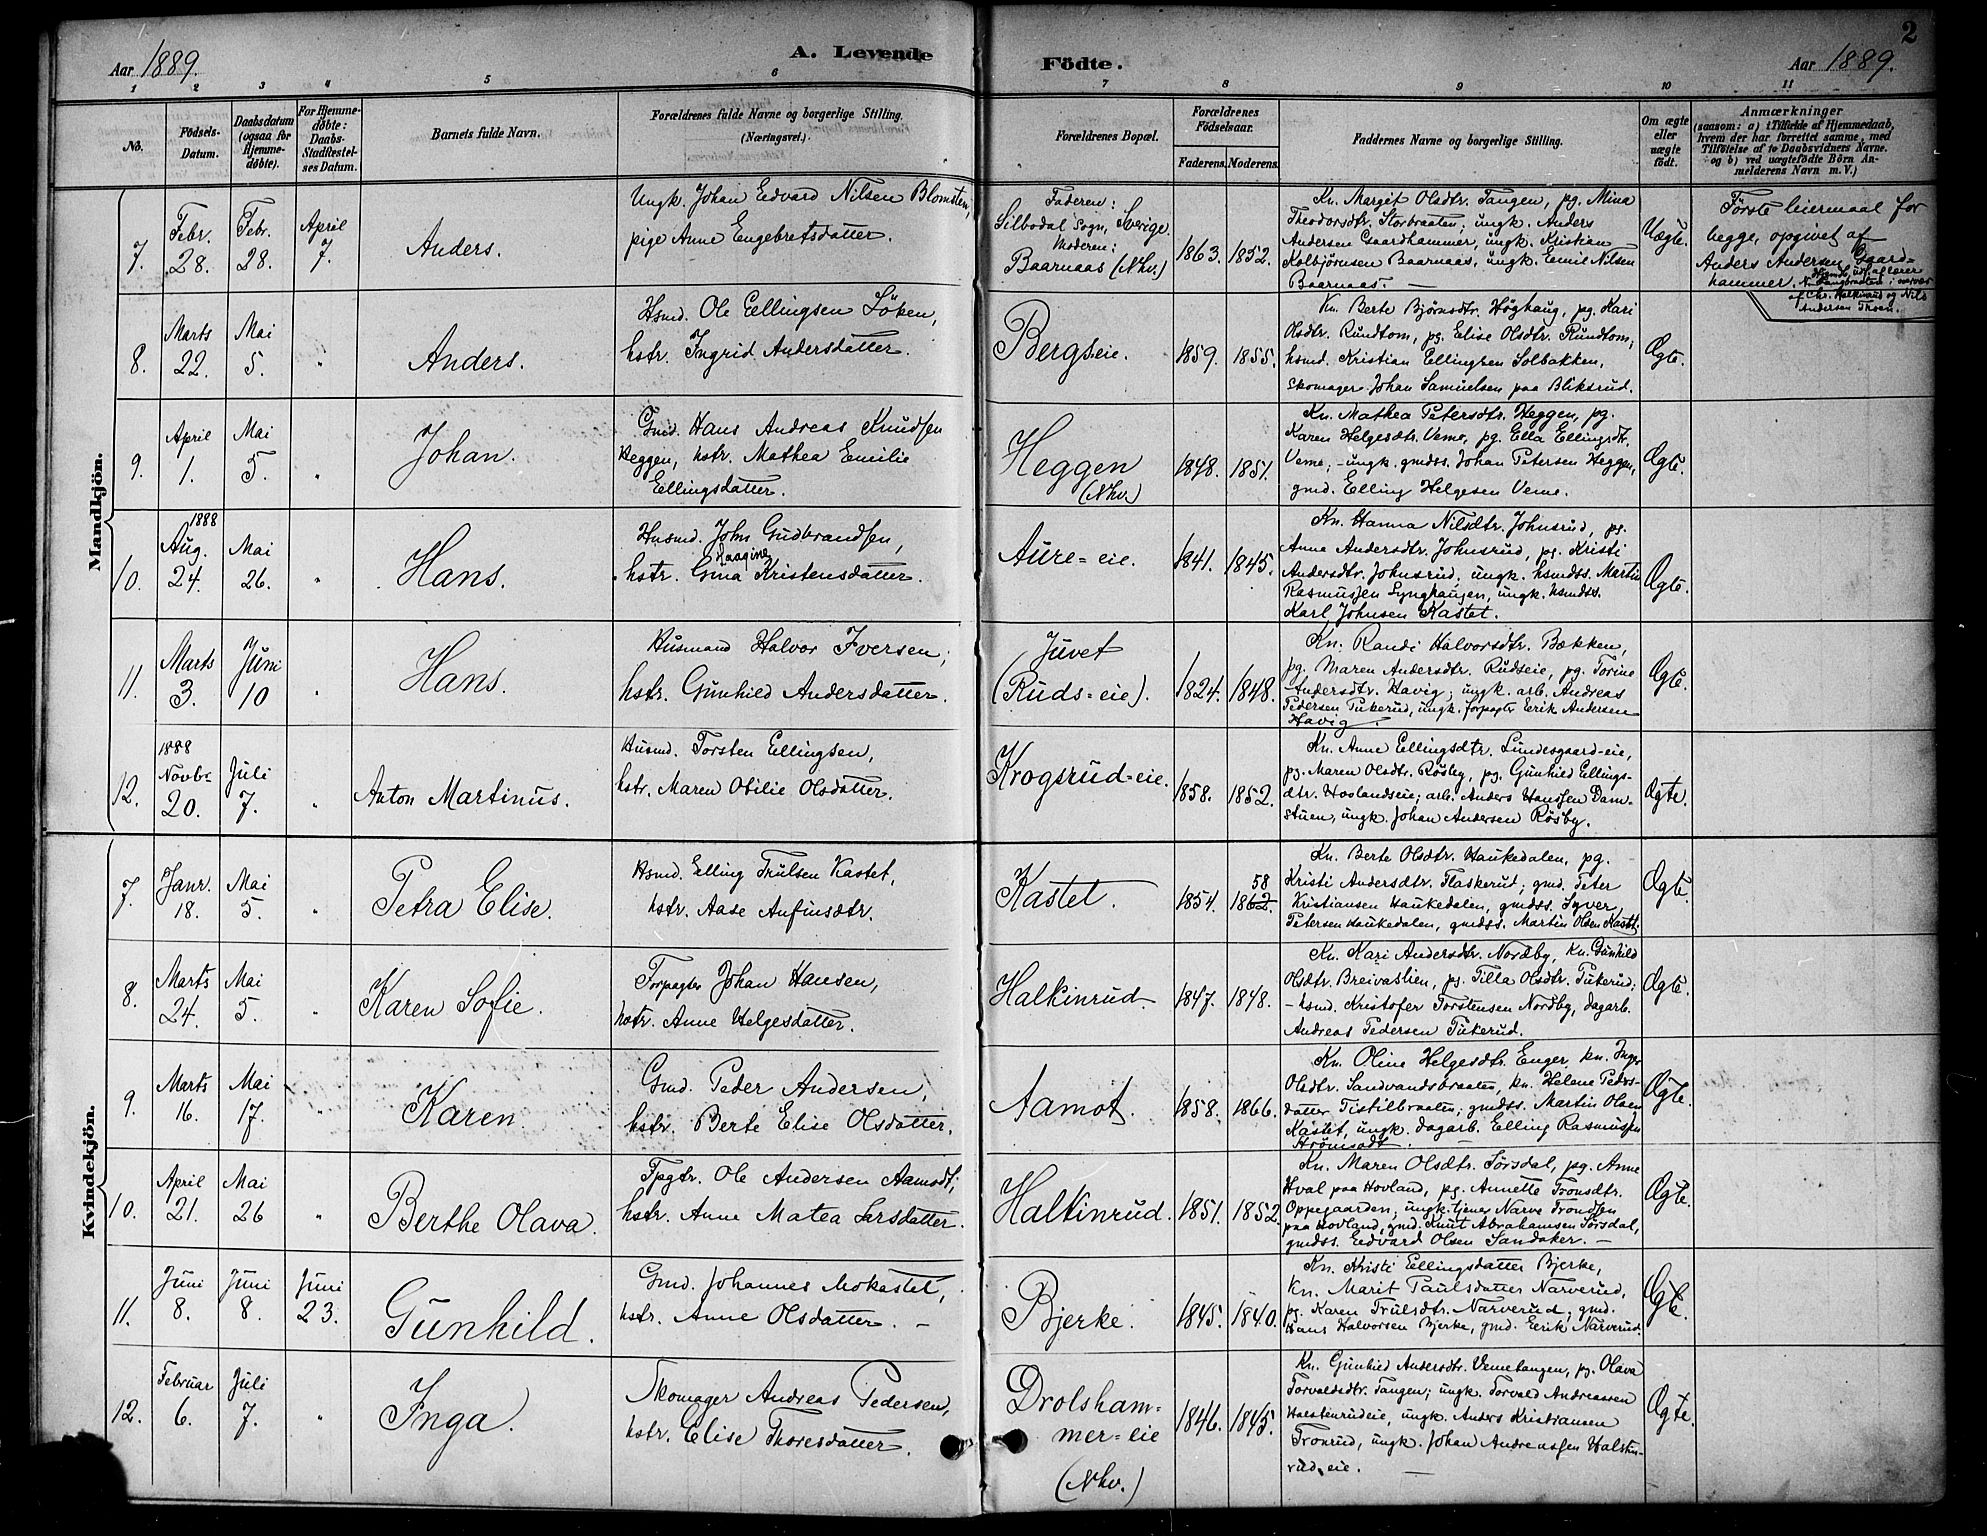 Aar 1889.
A. Levende Födte.
Aar 1889.
2
1 2 3 4 5 6 7 8 9 10 11
No.
Födsels-Datum.
Daabsdatum (ogsaa for Hjemme-döbte).
For Hjemme-döbte: Daabs-Stadfæstel-ses Datum.
Barnets fulde Navn.
Forældrenes fulde Navne og borgerlige Stilling. (Næringsvei.)
Forældrenes Bopæl.
Forældrenes Födselsaar.
Faderens. Moderens.
Faddernes Navne og borgerlige Stilling.
Om ægte eller uægte født.
Anmærkninger
(saasom: a) i Tilfælde af Hjemmedaab,
hvem der har forrettet samme, med
Tilföielse af to Daabsvidners Navne.
og b) ved uægtefödte Börn An-
melderens Navn m. V.)
Mandkjön.
7.
Febr. 28.
Febr. 28.
April 7.
Anders.
Ungk. Johan Edvard Nilsen Blomsten,
pige Anne Engebretsdatter.
Faderen:
Silbodal Sogn, Sverige.
Moderen:
Baarnaas (Nhv.)
1863. 1852.
Kn. Margit Olsdtr. Tangen, pg. Mina
Theodorsdtr. Storbraaten; ungk. Anders
Andersen Gaardhammer, ungk. Kristian
Kolbjörnsen Baarnaas, ungk. Emil Nilsen
Baarnaas. —
Uægte.
Förste leiermaal for
begge, opgivet af
Anders Andersen Gaard-
hammer.
af Chr. Halkinrud og Nils
Andersen Thoen.
8.
Marts 22.
Mai 5.
"
Anders.
Hsmd. Ole Ellingsen Löken,
hstr. Ingrid Andersdatter.
Bergseie.
1859. 1855.
Kn. Berte Björnsdtr. Höghaug, pg. Kari
Olsdtr. Rundtom, pg. Elise Olsdtr. Rundtom;
hsmd. Kristian Ellingsen Solbakken,
Skomager Johan Samuelsen paa Bliksrud.
Ægte.
9.
April 1.
Mai 5.
"
Johan.
Gmd. Hans Andreas Knudsen
Heggen, hstr. Mathea Emilie
Ellingsdatter.
Heggen
(Nhv.)
1848. 1851.
Kn. Mathea Petersdtr. Heggen, pg.
Karen Helgesdtr. Veme, pg. Ella Ellingsdtr.
Veme; - ungk. gmdss. Johan Petersen Heggen,
gmd. Elling Helgesen Veme.
Ægte.
10.
1888 Aug. 24.
Mai 26.
"
Hans.
Husmd. John Gudbrandsen,
Haagine
hstr. Gina Kristensdatter.
Aure=eie.
1841. 1845.
Kn. Hanna Nilsdtr. Johnsrud, pg.
Anne Andersdtr. Johnsrud, pg. Kristi
Andersdtr. Johnsrud; ungk. hsmdss. Martin
Rasmussen Lynghaugen, ungk. hsmdss.
Karl Johnsen Kastet.
Ægte.
11.
Marts 3.
Juni 10
"
Hans.
Husmand Halvor Iversen,
hstr. Gunhild Andersdatter.
Juvet
(Ruds=eie).
1824. 1848.
Kn. Randi Halvorsdtr. Bækken,
pg. Maren Andersdtr. Rudseie, pg. Torine
Andersdtr. Havig; ungk. arb. Andreas
Pedersen Tukerud, ungk. forpagter Erik Andersen
Havig.
Ægte.
12.
1888 Novbr. 20.
Juli 7.
"
Anton Martinus.
Husmd. Torsten Ellingsen,
hstr. Maren Otilie Olsdatter.
Krogsrud=eie.
1858. 1852.
Kn. Anne Ellingsdtr. Lundesgaard-eie,
pg. Maren Olsdtr. Rösby, pg. Gunhild Ellings-
dtr. Hovlandseie; arb. Anders Hansen Dam-
stuen, ungk. Johan Andersen Rösby.
Ægte.
Kvindekjön.
7.
Janr. 18.
Mai 5.
"
Petra Elise.
Hsmd. Elling Trulsen Kastet,
hstr. Aase Anfinsdtr.
Kastet.
1854. 1862. 58
Kn. Berte Olsdtr. Haukedalen, pg.
Kristi Andersdtr. Flaskerud; gmd. Peter
Kristiansen Haukedalen, gmdss. Syver
Petersen Haukedalen, gmdss. Martin Olsen Kastet.
Ægte.
8.
Marts 24.
Mai 5.
"
Karen Sofie.
Forpagter Johan Hansen,
hstr. Anne Helgesdatter.
Halkinrud
1847. 1848.
Kn. Kari Andersdtr. Nordby, kn. Gunhild
Olsdtr. Breivastien, pg. Tilla Olsdtr. Tukerud;
- hsmd. Kristofer Torstensen Nordby, dagarb.
Andreas Pedersen Tukerud.
Ægte.
9.
Marts 16.
Mai 17.
"
Karen.
Gmd. Peder Andersen,
hstr. Berte Elise Olsdatter.
Aamot.
1858. 1866.
Kn. Oline Helgesdtr. Enger kn. Inger
Olsdtr. Sandvandsbraaten, kn. Helene Peders-
datter Tistilbraaten; gmdss. Martin Olsen
Kastet, ungk. dagarb. Elling Rasmussen
Strömsodt.
Ægte.
10.
April 21.
Mai 26
"
Berthe Olava.
Fpgtr. Ole Andersen Aamodt,
hstr. Anne Matea Larsdatter.
Halkinrud.
1851. 1852.
Kn. Maren Olsdtr. Sörsdal, pg. Anne
Hval paa Hovland, pg. Annette Tronsdtr.
Oppegaarden; ungk. tjener Narve Trondsen
paa Hovland, gmd. Knut Abrahamsen Sörsdal,
gmdss. Edvard Olsen Sandaker. —
Ægte.
11.
Juni 8.
Juni 8.
Juni 23.
Gunhild.
Gmd. Johannes Mokastet,
hstr. Anne Olsdatter. —
Bjerke.
1845. 1840.
Kn. Kristi Ellingsdatter Bjerke,
Kn. Marit Paulsdatter Narverud,
pg. Karen Trulsdtr. Narverud; gmd.
Hans Halvorsen Bjerke, gmd. Erik Narverud.
Ægte.
12.
Februar 6.
Juli 7.
"
Inga.
Skomager Andreas Pedersen,
hstr. Elise Thoresdatter.
Drolsham=
mer=eie
(Nhv.)
1846. 1845.
Kn. Gunhild Andersdtr. Vemetangen, pg. Olava
Torvaldsdtr. Tangen; ungk. Torvald Andreassen
Halstenrudeie, ungk. Anders Kristiansen
Tronrud, ungk. Johan Andreassen Halsten-
rudeie. —
Ægte.